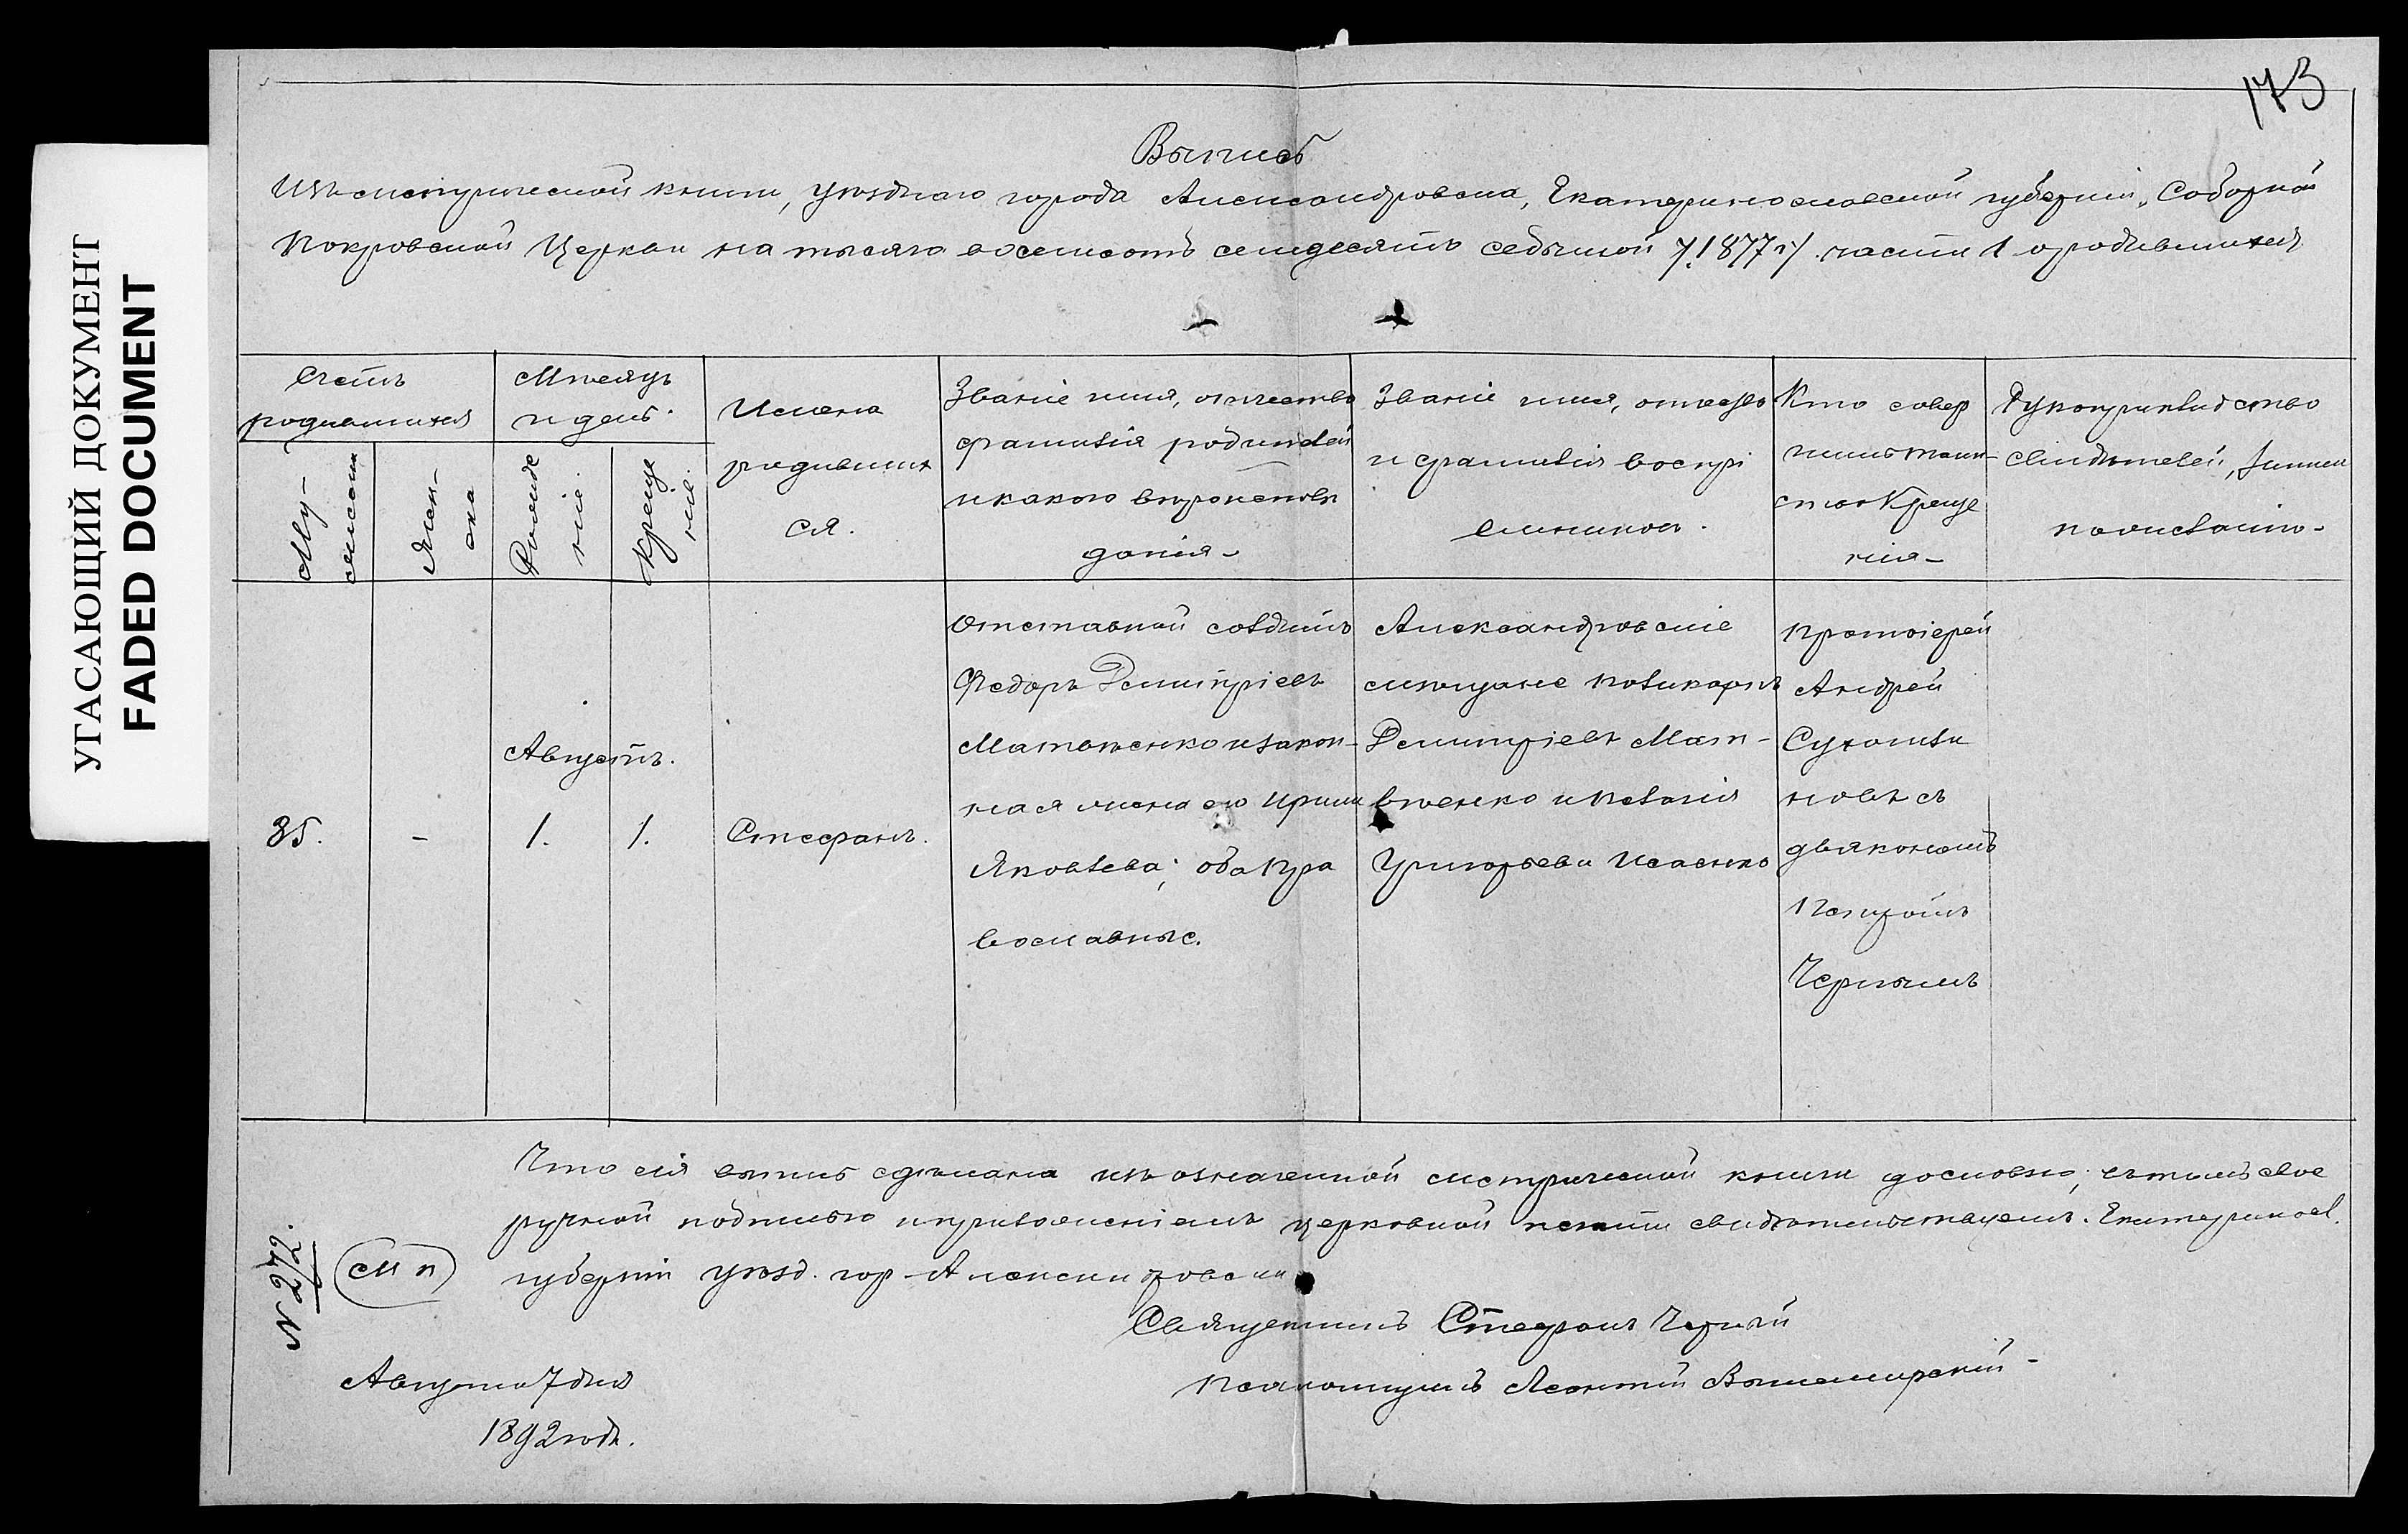 173
УГАСАЮЩИЙ ДОКУМЕНТ
FADED DOCUMENT
Выпись
Изъ метрической книги, уѣзднаго города Александровска, Екатеринославской губерніи, Соборной
Покровской Церкви на тысяча восемсотъ семдесятъ седьмой /:1877 г:/ части 1 о родившихся
Счетъ
родившихся
Му-
жеска
Жен-
ска
Мѣсяцъ
и день.
Рожде
ніе.
Креще
ніе.
Имена
родивших
ся.
Званіе имя, отчество
фамилія родителей
и какого вѣроисповѣ
данія-
Званіе имя, отчество
и фамилія воспрі
емниковъ.
Кто совер
шилъ таин-
ство Креще
нія-
Рукоприкладство
свидѣтелей,
по желанію-
35.
-
Августъ.
1.
1.
Стефанъ.
Отставной солдатъ
Федоръ Димитріевъ
Матвѣенко и закон-
ная жена его Ирина
Яковлева; оба пра
вославные.
Александровскіе
мѣщане Поликарпъ
Димитріевъ Мат-
вѣенко и Пелагія
Григорьева Исаенко
Протоіерей
Андрей
Сухомли
новъ съ
дьякономъ
Петромъ
Чернымъ
Что сія выпись сдѣлана изъ означенной метрической книги дословно, въ томъ свое
ручной подписью и приложеніемъ церковной печати свидѣтельствуемъ. Екатериносл.
губерніи уѣзд. гор. Александровскъ
№ 242.
М П
Священникъ Стефанъ Черный
Псаломщикъ Леонтій Вышемирскій-
Августа 7 дня
1892 года.